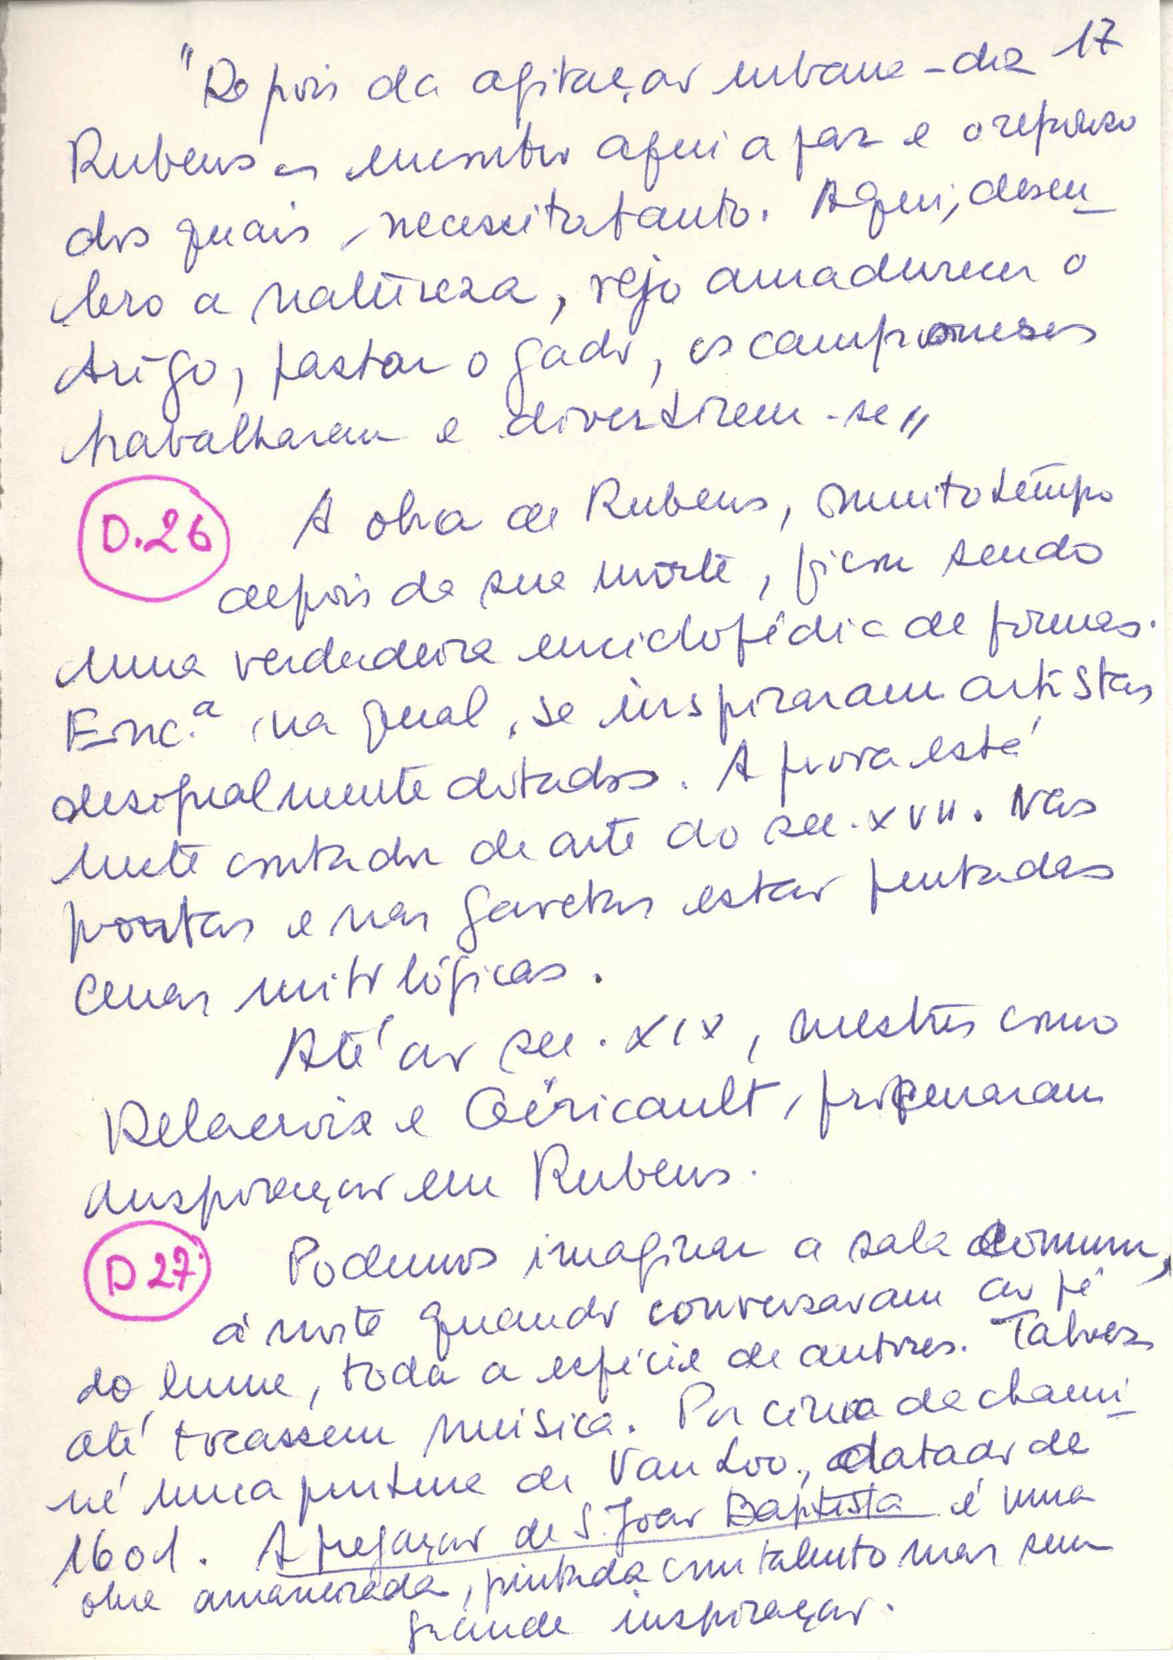 17
"Depois da agitação urbana - diz
Rubens - encontro aqui a paz e o repouso
dos quais, necessito tanto. Aqui, desen_
bro a natureza, vejo amadurecer o
trigo, pastar o gado, os camponeses
trabalharem e divertirem-se"
D.26
A obra de Rubens, muito tempo
depois da sua morte, ficou sendo
uma verdadeira enciclopédia de formas.
Enc.a na qual, se inspiraram artistas
desigualmente dotados. A prova está
neste contador de arte do sec. XVII. Nas
portas e nas gavetas estão pintadas
cenas mitológicas.
Até ao sec. XIX, mestres como
Delacroix e Géricault, procuraram
inspiração em Rubens.
D 27
Podemos imaginar a sala comum,
à noite quando conversavam ao pé
do lume, toda a espécie de autores. Talvez
até tocassem música. Por cima da chami_
né uma pintura de Van Loo, datado de
1601. A pregação de S. João Baptista é uma
obra amaneirada, pintada com talento mas sem
grande inspiração.